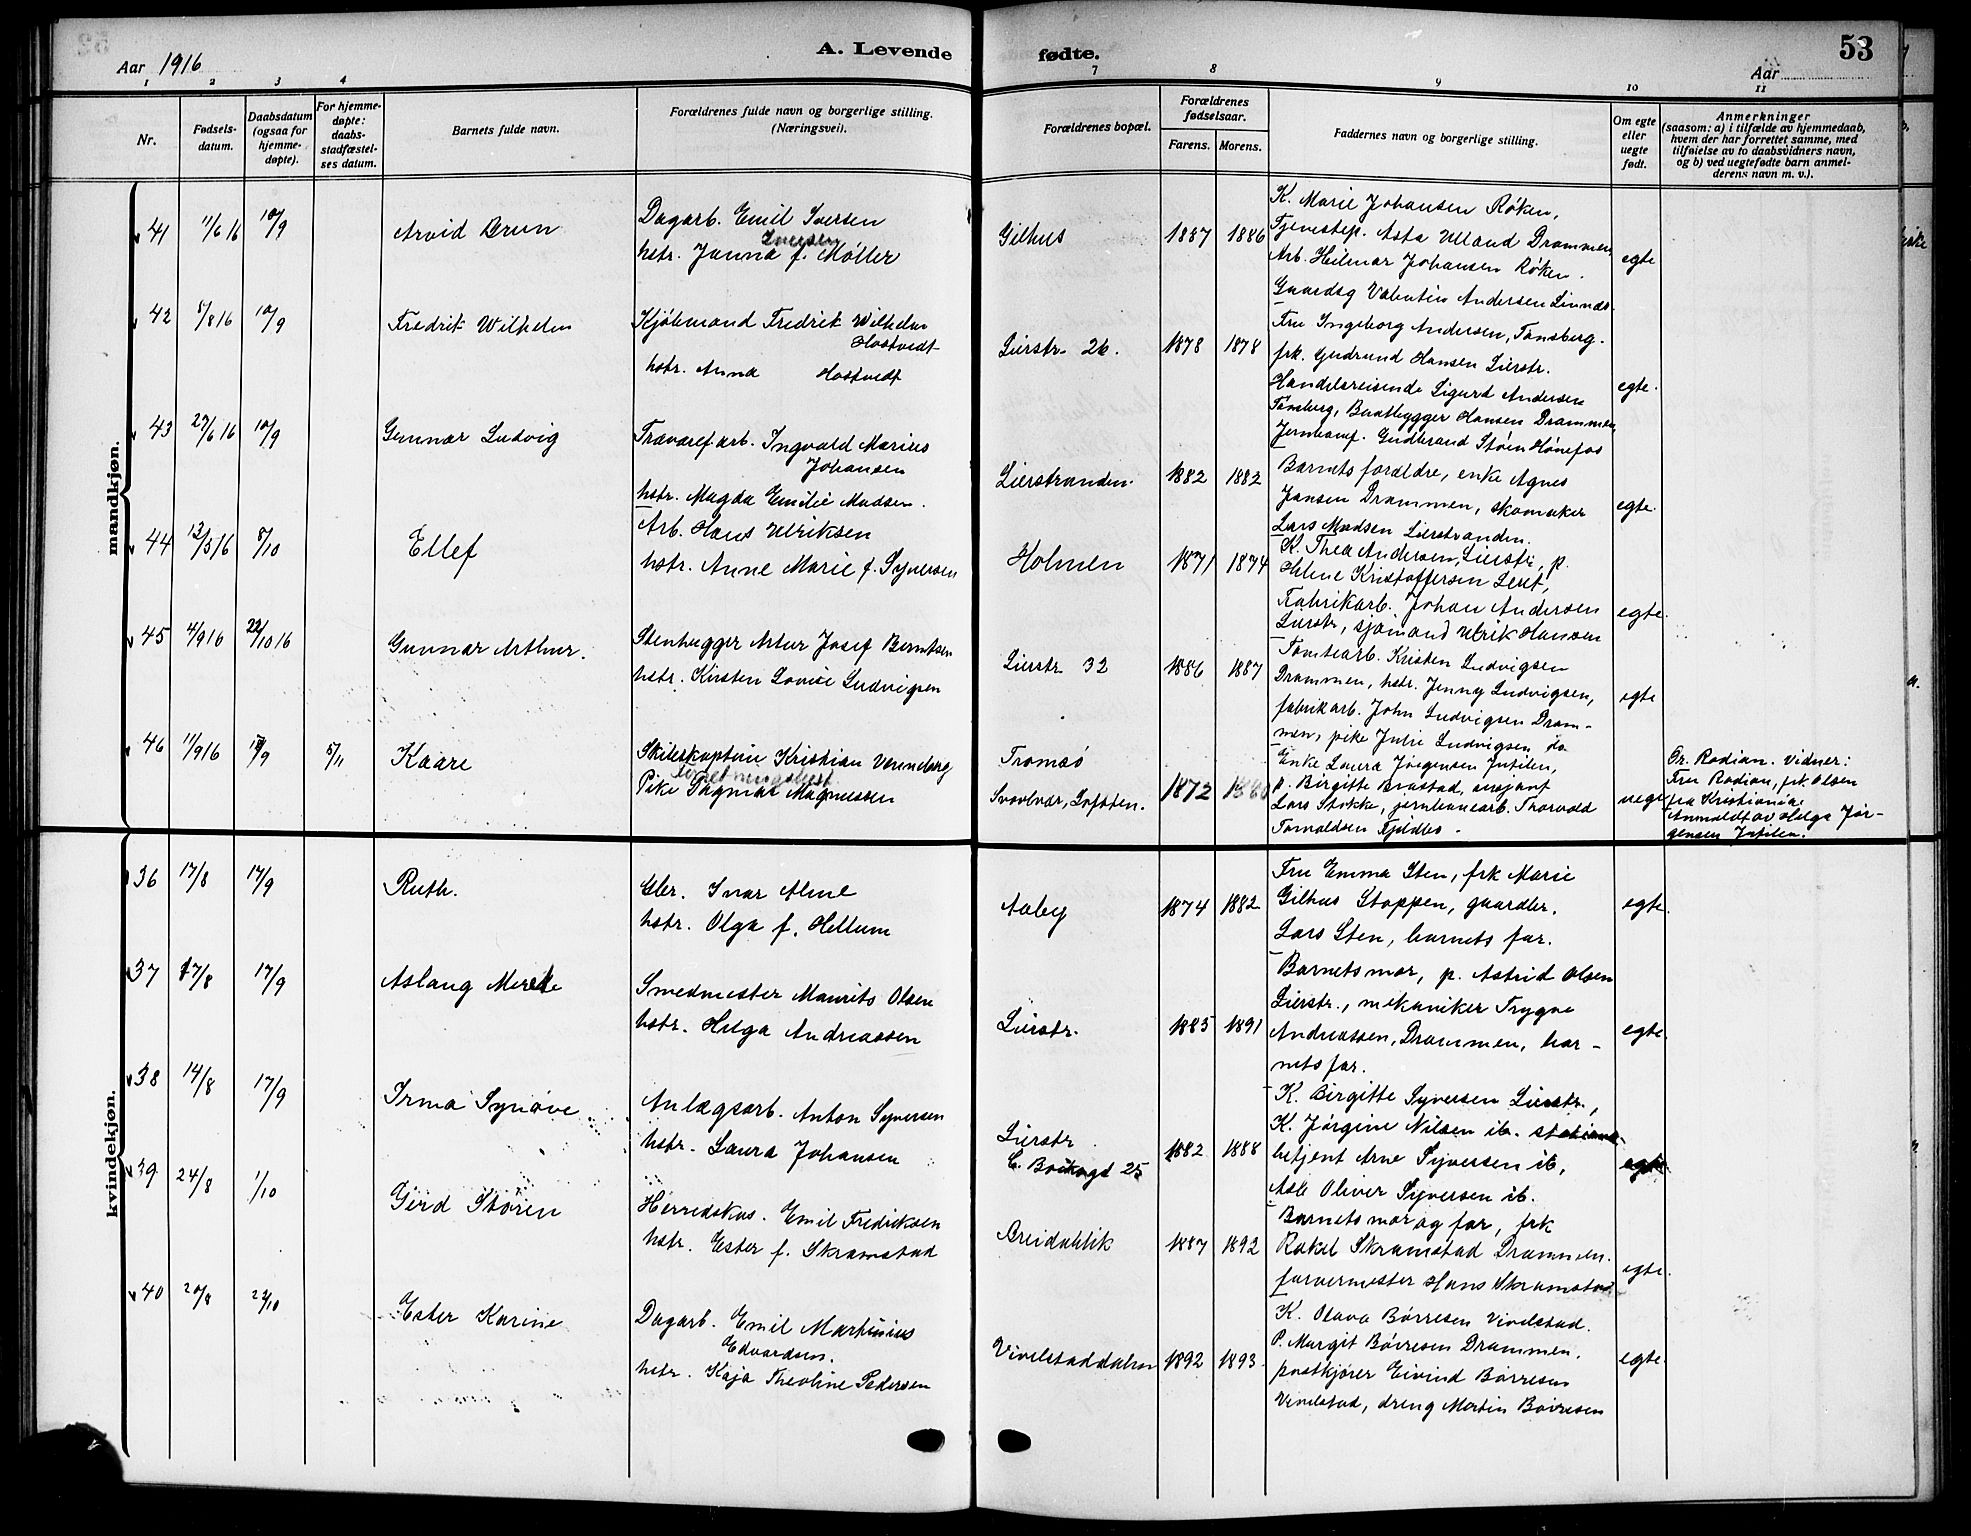 Aar 1916
A. Levende fødte.
53
Aar
1 2 3 4 7 8 9 10 11
Nr.
Fødsels-
datum.
Daabsdatum
(ogsaa for
hjemme-
døpte).
For hjemme-
døpte:
daabs-
stadfæstel-
ses datum.
Barnets fulde navn.
Forældrenes fulde navn og borgerlige stilling.
(Næringsvei).
Forældrenes bopæl.
Forældrenes
fødselsaar.
Farens. Morens.
Faddernes navn og borgerlige stilling.
Om egte
eller
uegte
født.
Anmerkninger
(saasom: a) i tilfælde av hjemmedaab,
hvem der har forrettet samme, med
tilføielse av to daabsvidners navn,
og b) ved uegtefødte barn anmel-
derens navn m. v.).
mandkjøn.
41 11/6 16 10/9 Arvid Brun
Dagarb. Emil Iversen
Iversen
hstr. Janna f. Møller
Gilhus 1887 1886
K. Marie Johansen Røken,
Tjenestep. Asta Ulland Drammen,
Arb. Hilmar Johansen Røken.
egte
42 5/8 16 10/9 Fredrik Wilhelm
Kjøbmand Fredrik Wilhelm
Hostvedt
hstr. Anna Hostvedt
Lierstr. 26. 1878 1878
Gaardbr Valentin Andersen
Fru Ingeborg Andersen, Tønsberg.
frk. Gudrund Hansen Lierstr.
Handelsreisende Sigurd Andersen
Tønsberg, Baatbygger Hansen Drammen,
Gudbrand Støen Hønefos
egte.
43 27/6 16 10/9 Gunnar Ludvig
Trævaref arb. Ingvald Marius
Johansen
hstr. Magda Emilie Madsen.
Lierstranden. 1882 1882
Barnets forældre, enke Agnes
Jansen Drammen, skomaker
Lars Madsen Lierstranden.
egte.
44 13/5 16 8/10 Ellef
Arb. Hans Ulriksen
hstr. Anne Marie f. Syversen
Holmen 1871 1874
K. Thea Andersen, Lierstr., p.
Helene Kristoffersen
Fabrikarb. Johan Andersen
Lierstr, sjømand Ulrik Hansen
egte.
45 4/9 16 22/10 16 Gunnar Arthur.
Stenhugger Artur Josef Berntsen
hstr. Kirsten Lovise Ludvigsen
Lierstr 32 1886 1887
Tomtearb. Kristen Ludvigsen
Drammen, hstr. Jenny Ludvigsen,
fabrikarb. John Ludvigsen Dram-
men, pike Julie Ludvigsen do
egte
46 11/9 16 /9 5/11 Kaare
Skibskaptein Kristian
Pike Dagmar Magnussen
Tromsø
Svolvær, Lofoten. 1872
Enke Laura Jørgensen Intilen,
p. Birgitte
Lars Stokke, jernbanearb. Thorvald
Tomaldsen
uegte
Or. Rodian. Vidner:
Fru Rodian, frk. Olsen
fra Kristiania.
Anmeldt av Helga Jør-
gensen Intilen.
kvindekjøn.
36 17/8 17/9 Ruth.
Ivar Alme
hstr. Olga f. Hellum
Aaby 1874 1882
Fru Emma Sten, frk Marie
Gilhus Stoppen, gaardbr.
Lars Sten, barnets far.
egte.
37 17/8 17/9 Aslaug Merete
Smedmester Maurits Olsen
hstr. Helga Andreassen
Lierstr. 1885 1891
Barnets mor, p. Astrid Olsen
Lierstr., mekaniker Trygve
Andreassen, Drammen, bar-
nets far.
egte.
38 14/8 17/9 Irma Synøve
Anlægsarb. Anton Syversen
hstr. Laura Johansen
Lierstr
25 1882 1888
K. Birgitte Syversen Lierstr.,
K. Jørgine Nilsen ib. stations-
betjent Arne Syversen ib,
Asle Oliver Syversen ib.
egte
39 24/8 1/10 Gerd Støren
Herredskas. Emil Fredriksen
hstr. Ester f. Skramstad
Breidablik 1887 1892
Barnets mor og far, frk
Rakel Skramstad Drammen.
farvermester Hans Skramstad
egte.
40 20/8 22/10 Ester Karine
Dagarb. Emil Martinius
Edvardsen.
hstr. Kaja Theoline Pedersen
Vivelstaddalen 1892 1893
K. Olava Børresen Vivelstad.
P. Margit Børresen Drammen.
postkjører Eivind Børresen
Vivelstad, dreng Martin Børresen
egte.